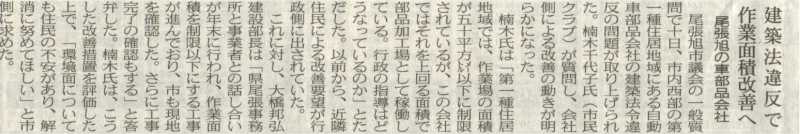 建築法違反で
作業面積改善へ
尾張旭の車部品会社
尾張旭市議会の一般質
問で十日、市内西部の第
一種住居地域にある自動
車部品会社の建築法令違
反の問題が取り上げられ
た。楠木千代子氏(市民
クラブ)が質問し、会社
側による改善の動きが明
らかになった。
楠木氏は「第一種住居
地域では、作業場の面積
が五十平方㍍以下に制限
されているが、この会社
ではそれを上回る面積で
部品加工場として稼働し
ている。行政の指導はど
うなっているのか」とた
だした。以前から、近隣
住民による改善要望が行
政側に出されていた。
これに対し、大橋邦弘
建設部長は「県尾張事務
所と事業者との話し合い
が年末に行われ、作業面
積を制限以下にする工事
が進んでおり、市も現地
を確認した。さらに工事
完了の確認もする」と答
弁した。楠木氏は、こう
した改善措置を評価した
上で、「環境面について
も住民の不安があり、解
消に努めてほしい」と市
側に求めた。